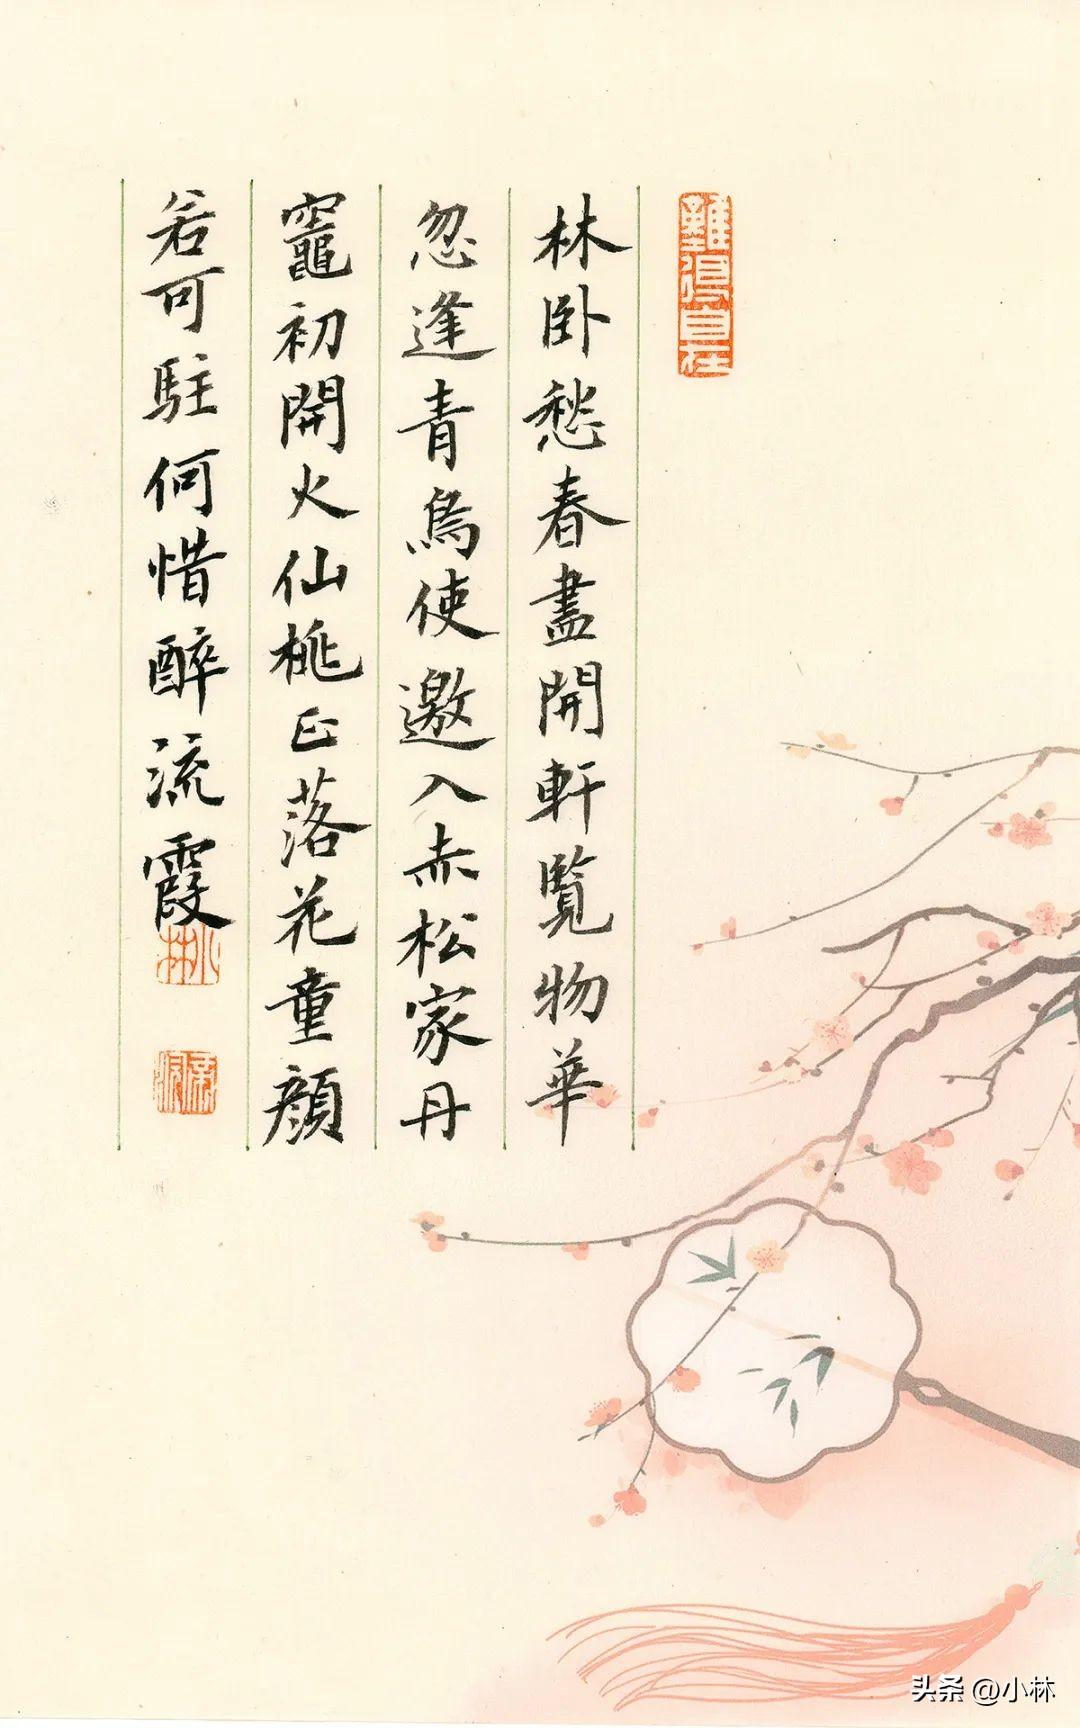 難得自在
林卧愁春盡開軒覽物華
忽逢青鳥使邀入赤松家丹
竈初開火仙桃正落花童顔
若可駐何惜醉流霞
小林
头条 @小林